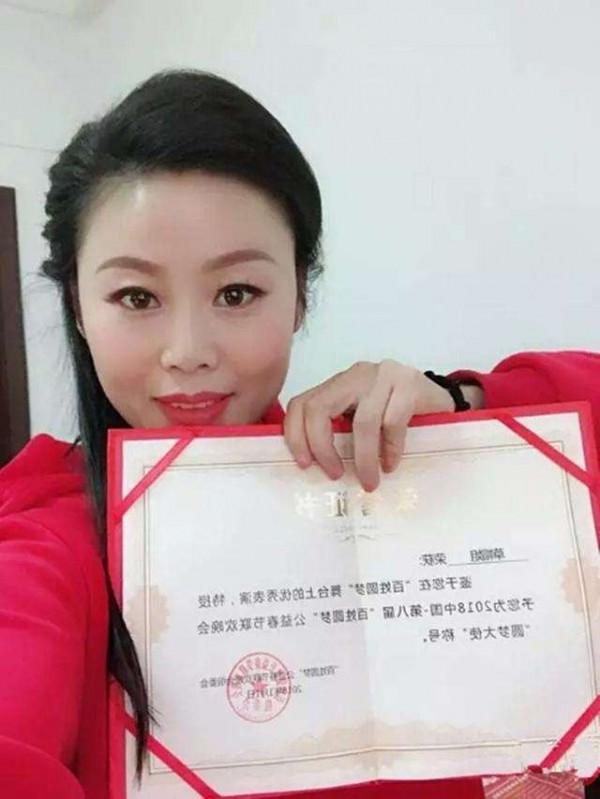 荣誉证书
草帽姐 荣获:
鉴于您在“百姓圆梦”舞台上的优秀表演,特授
予您为2018中国·第八届“百姓圆梦”公益春节联欢晚会
“圆梦大使”称号。
“百姓圆梦”公益春节联欢晚会组委会